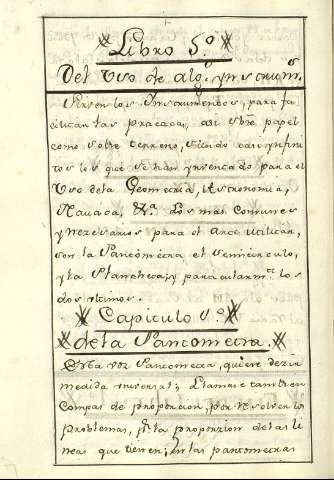 Libro 5º
Del Uso de algs. ynstrums.
Sirven los Ynstrumentos, para fa
cilitar las practicas, asi sobre papel
como sobre terreno, siendo casi ynfini
tos los que se han ynventado para el
Uso dela Geometria, Astronomia,
Nautica, &a. Los mas comunes
y nezesarios para el Arte militar,
son la Pantometra, el semicirculo,
y la Plancheta; y particularmte. los
dos ultimos.
Capitulo 1º
dela Pantometra.
Esta voz Pantometra, quiere dezir
medida universal; Llamase tambien
Compas de proporcion, por resolver los
problemas, pr. la proporzion de las li
neas que tienen; En las pantometras